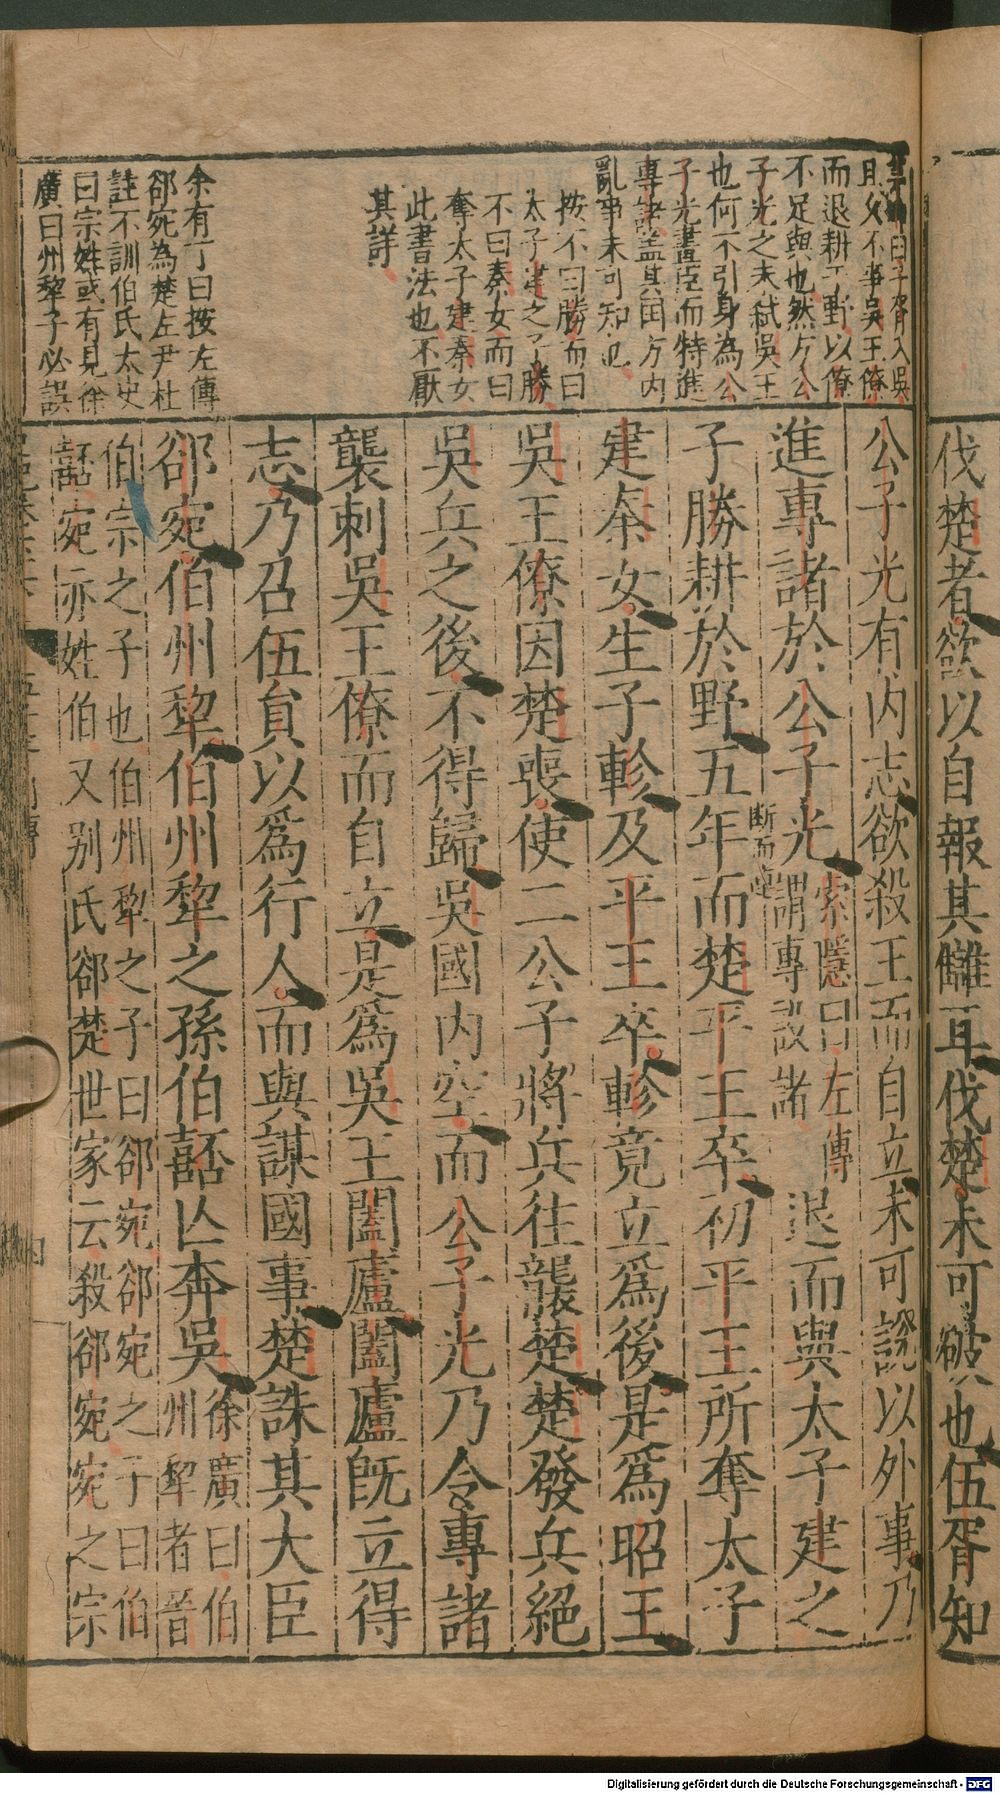 伐楚者欲以自報其讎耳伐楚未可破也伍胥知
公子光有内志欲殺王而自立未可說以外事乃
進專諸於公子光
索隱曰左傳
謂專設諸
退而與太子建之
子勝耕於野五年而楚平王卒初平王所奪太子
建秦女生子軫及平王卒軫竟立爲後是爲昭王
吳王僚因楚喪使二公子將兵往襲楚楚發兵絕
吳兵之後不得歸吳國内空而公子光乃令專諸
襲刺吳王僚而自立是爲吳王闔廬闔廬既立得
志乃召伍員以爲行人而與謀國事楚誅其大臣
郤宛伯州犂伯州犂之孫伯嚭亾奔吳
徐廣曰伯
州犂者晉
伯宗之子也伯州犂之子曰郤宛郤宛之子曰伯
嚭宛亦姓伯又别氏郤楚世家云殺郤宛宛之宗
曰子胥入吳
且父不事吳王僚
而退耕于野以僚
不足與也然方公
子光之未弑吳王
也何不引身為公
子光畫臣而特進
專諸盖其国方内
亂事未可知也
按不曰勝而曰
太子建之子勝
不曰秦女而曰
奪太子建秦女
此書法也不厭
其詳
余有丁曰按左傳
郤宛為楚左尹杜
註不訓伯氏太史
曰宗姓或有見徐
廣曰州犂子必誤
断而
Digitalisierung gefördert durch die Deutsche Forschungsgemeinschaft - DFG